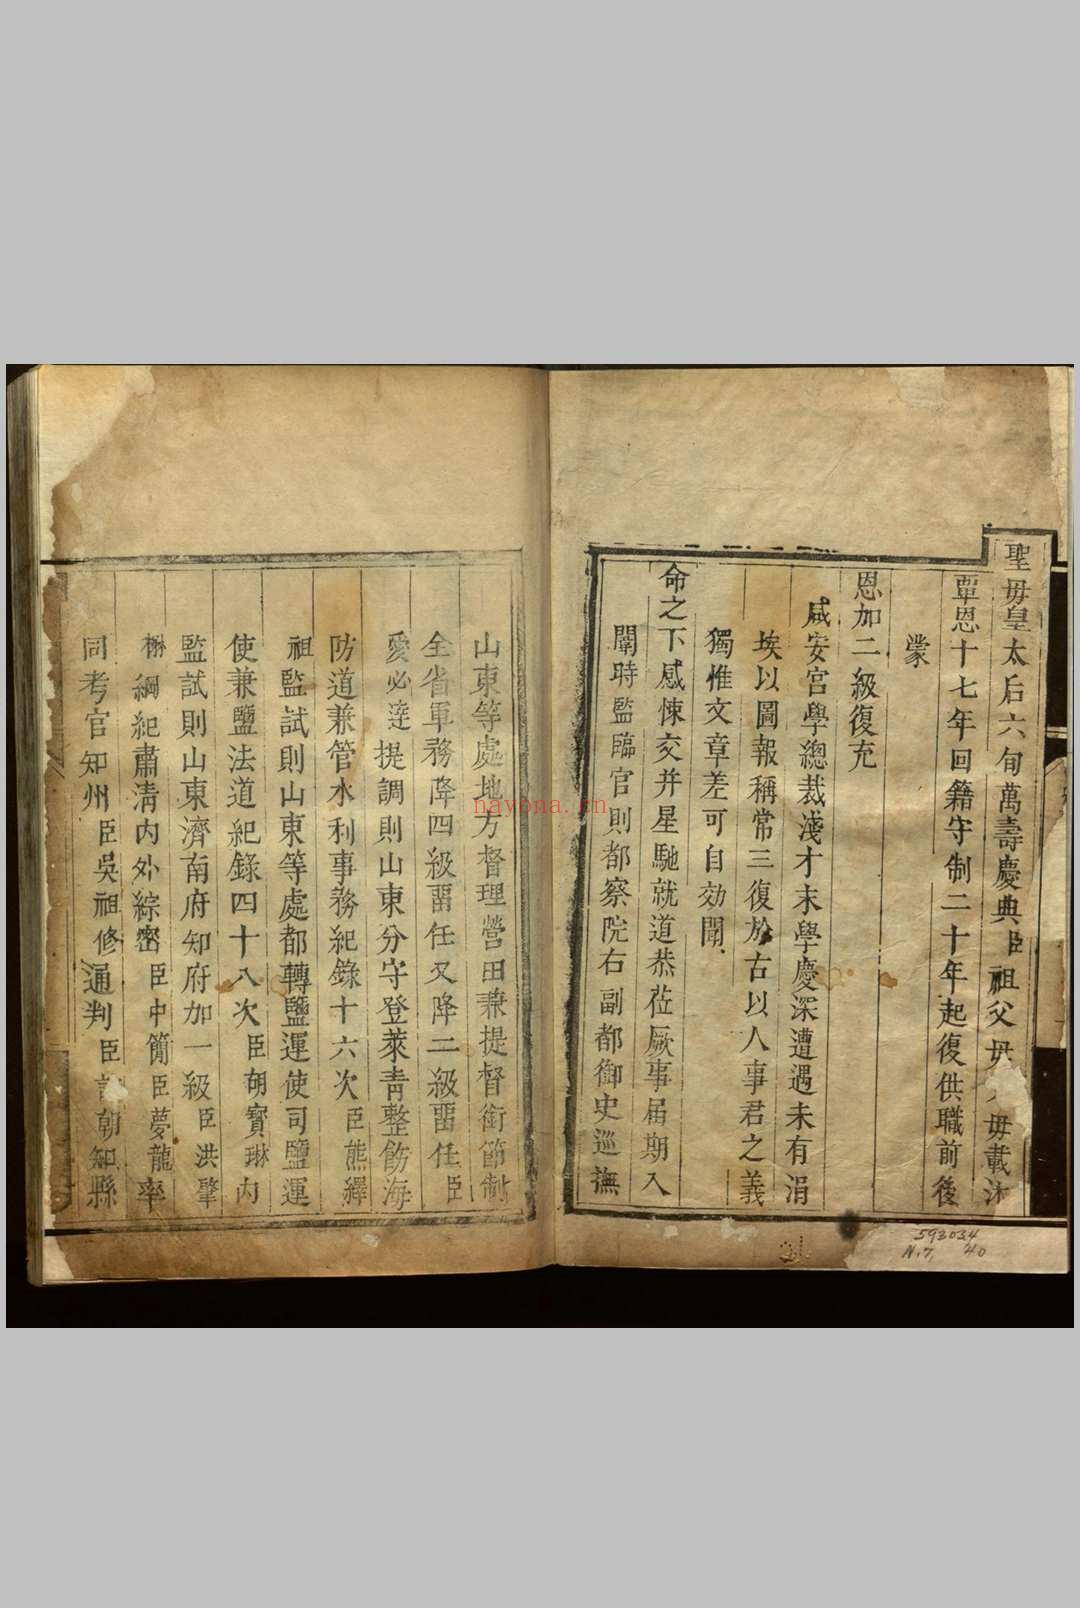 聖毋皇太后六旬萬壽慶典臣祖父毋 毋載沐
覃恩十七年回籍守制二十年起復供職前後
蒙
恩加二級復充
咸安宮學總裁淺才末學慶深遭遇未有涓
埃以圖報稱常三復於古以人事君之義
獨惟文章差可自効聞
命之下感悚交并星馳就道恭蒞厥事屆期入
闈時監臨官則都察院右副都御史巡撫
山東等處地方督理營田兼提督銜節制
全省軍務降四級畱任又降二級畱任臣
愛必達提調則山東分守登萊青整飭海
防道兼管水利事務紀錄十六次臣熊繹
祖監試則山東等處都轉鹽運使司鹽運
使兼鹽法道紀錄四十八次臣胡寳瑔內
監試則山東濟南府知府加一級臣洪肇
楙綱紀肅清內外綜密臣中簡臣夢龍率
同考官知州臣吳祖修通判臣 朝知縣
nayona.cn
593034
N.7, 40